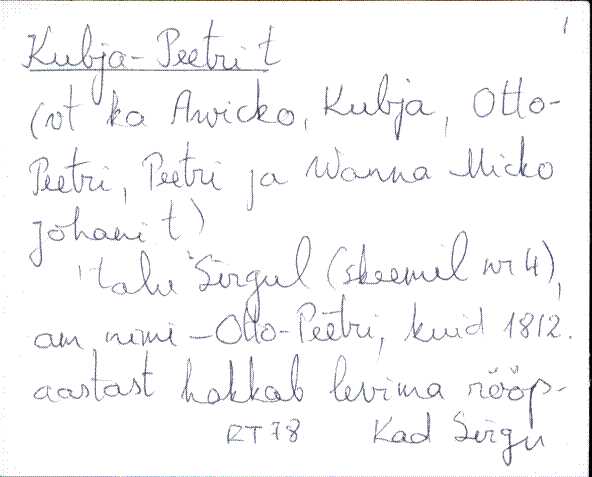 1
Kubja-Peetri t
(vt ka Arvicko, Kubja, Otto-
Peetri, Peetri ja Wanna Micko
Johani t)
talu Sirgul (skeemil nr 4),
am nimi – Otto-Peetri, kuid 1812.
aastast hakkab levima rööp-
RT 78 Kad Sirgu